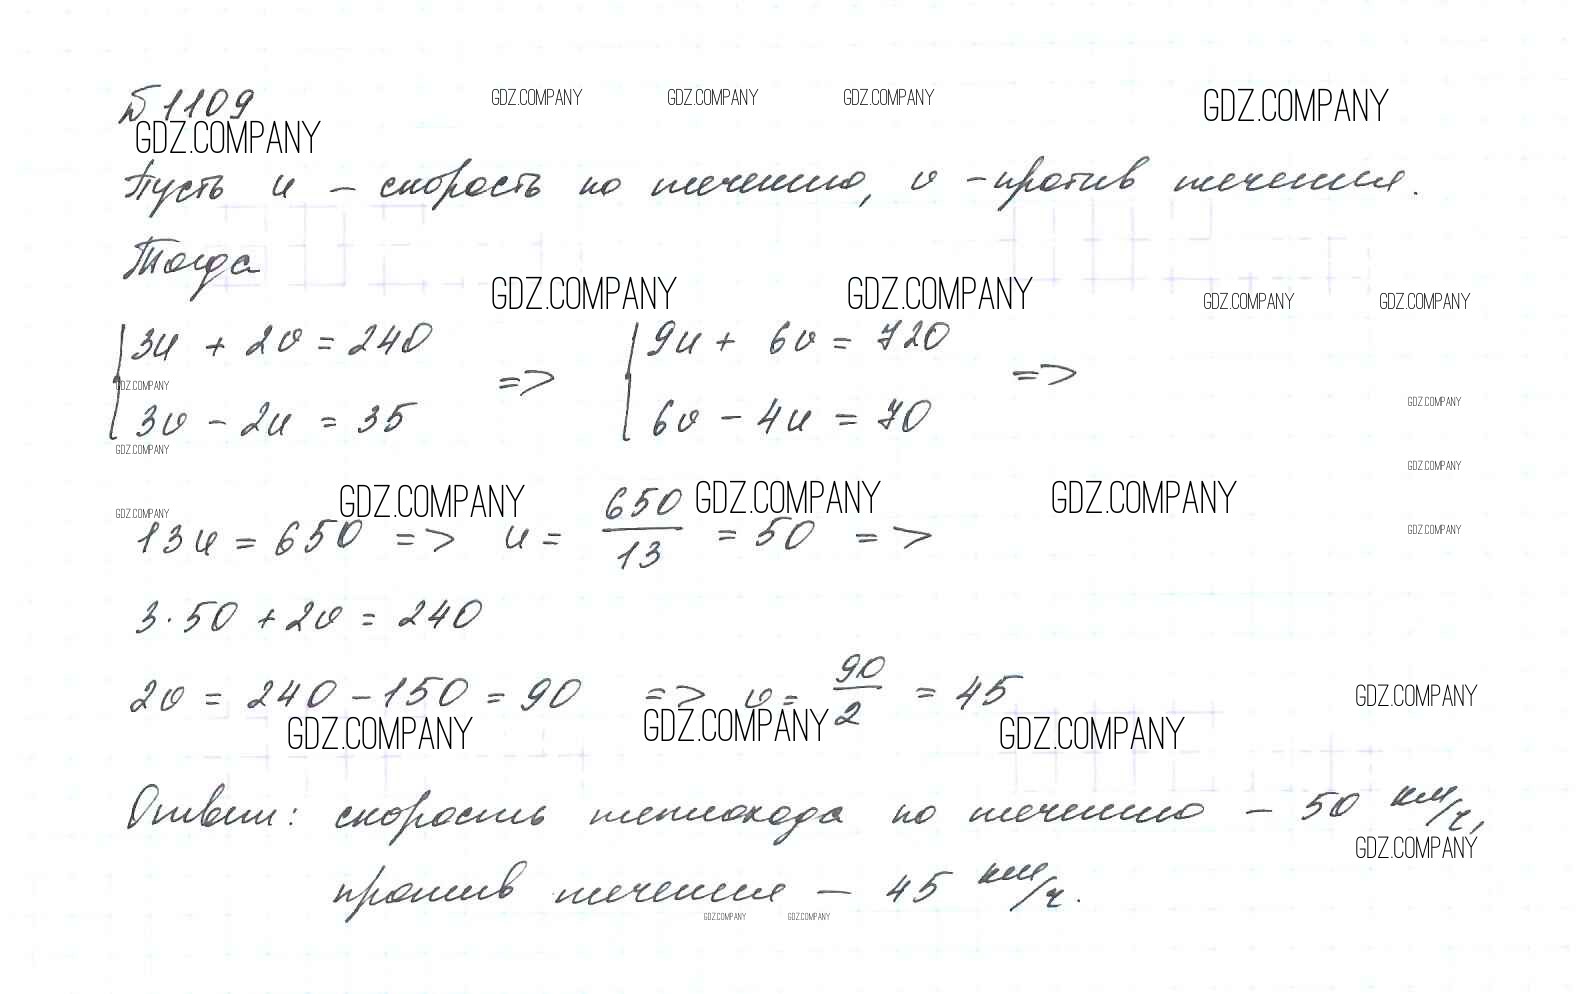 №1109
GDZ.COMPANY GDZ.COMPANY GDZ.COMPANY GDZ.COMPANY
GDZ.COMPANY
Пусть u – скорость по течению, v – против течения.
Тогда
GDZ.COMPANY GDZ.COMPANY GDZ.COMPANY GDZ.COMPANY
{3u + 2v = 240 {9u + 6v = 720
=> =>
GDZ.COMPANY GDZ.COMPANY
3v – 2u = 35 6v – 4u = 70
GDZ.COMPANY GDZ.COMPANY
GDZ.COMPANY GDZ.COMPANY GDZ.COMPANY GDZ.COMPANY
13u = 650 => u = 650/13 = 50 =>
GDZ.COMPANY
3·50 + 2v = 240
2v = 240 – 150 = 90 => v = 90/2 = 45
GDZ.COMPANY
GDZ.COMPANY GDZ.COMPANY GDZ.COMPANY
Ответ: скорость теплохода по течению – 50 км/ч,
GDZ.COMPANY
против течения – 45 км/ч.
GDZ.COMPANY GDZ.COMPANY